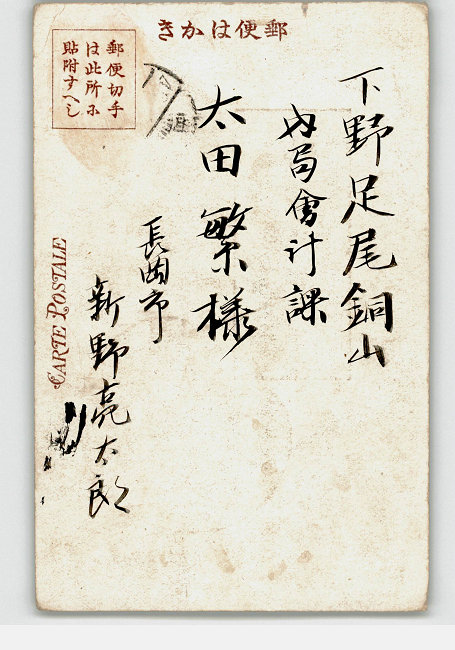 郵便はかき
郵便切手
は此所に
貼附すへし
下野足尾銅山
会計課
太田繁様
長岡市
新野亮太郎
CARTE POSTALE